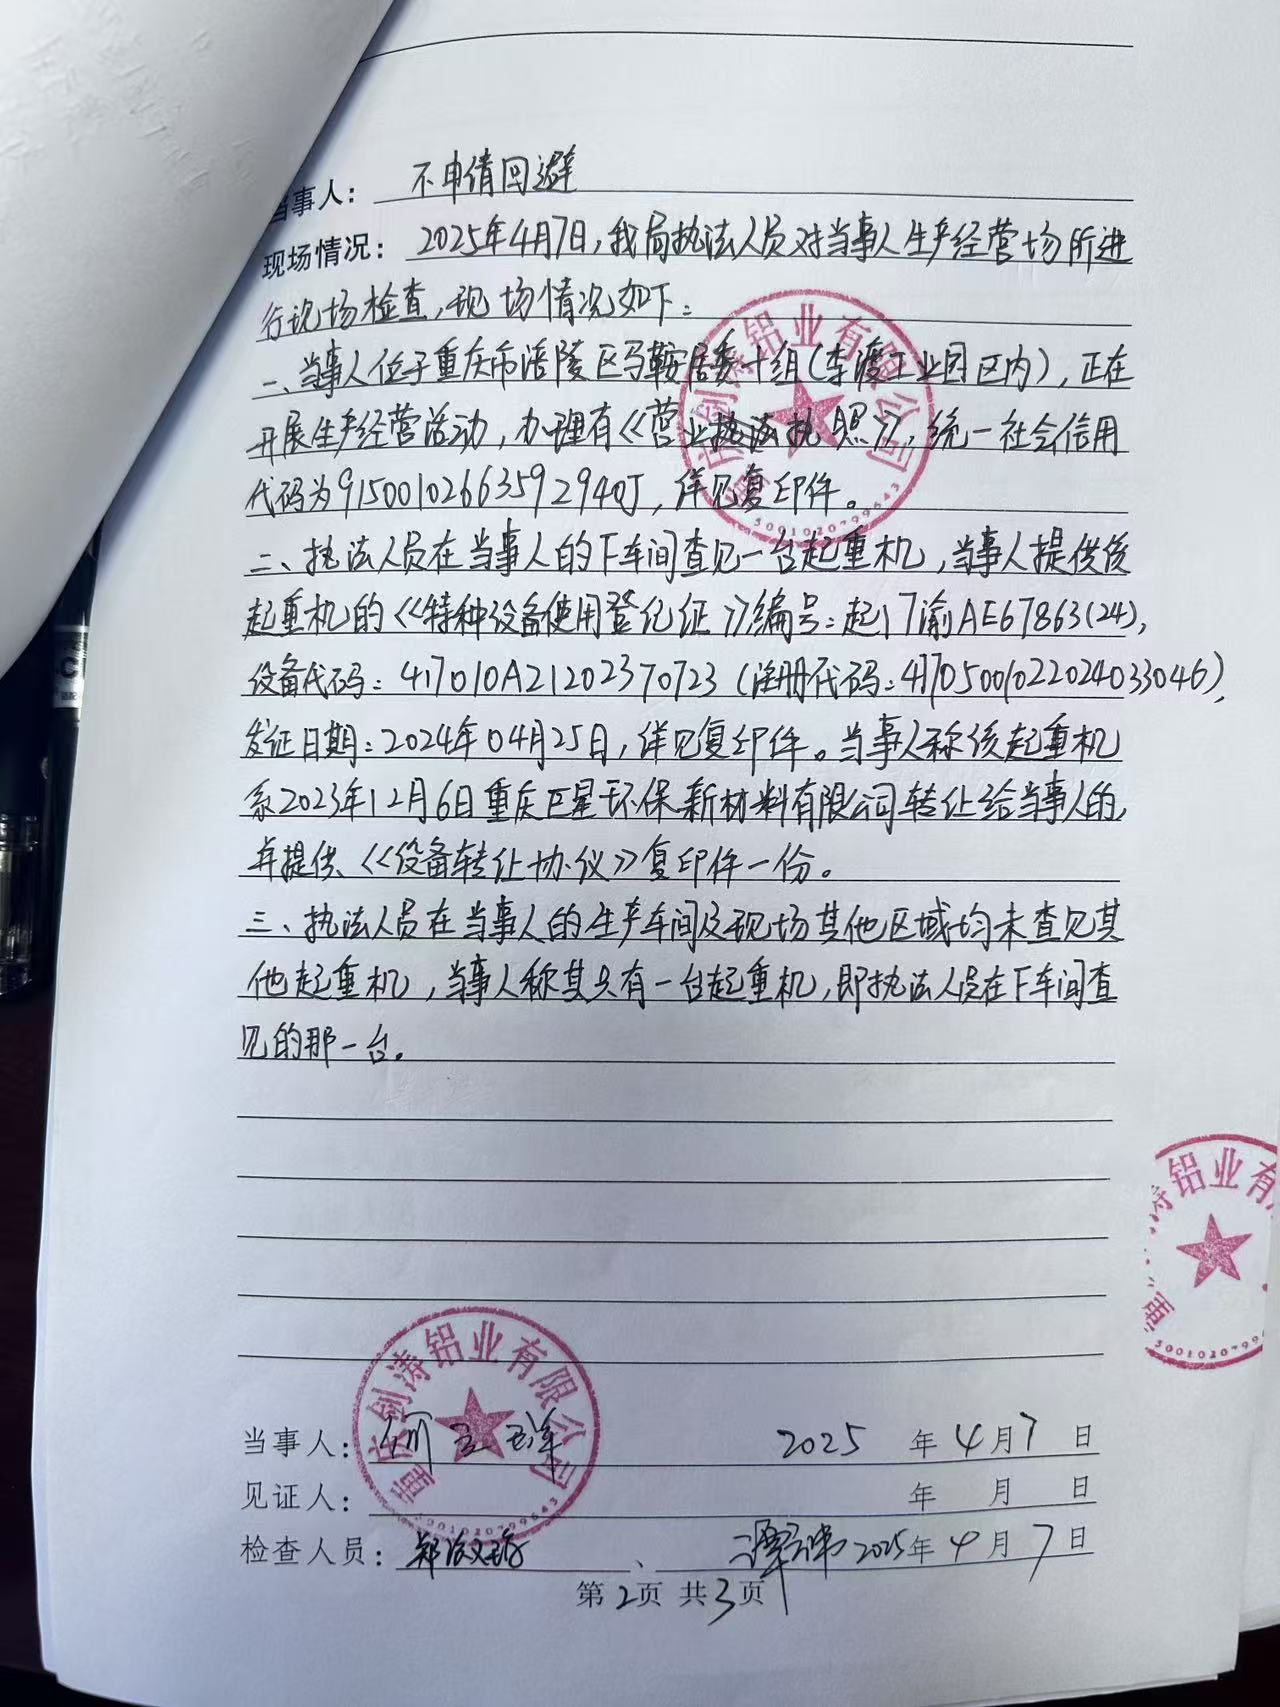 当事人： 不申请回避
现场情况： 2025年4月7日，我局执法人员对当事人生产经营场所进
行现场检查，现场情况如下：
一、当事人位于重庆市涪陵区马鞍居委十组（李渡工业园区内），正在
开展生产经营活动，办理有《营业执法执照》，统一社会信用
代码为91500102663592940J，详见复印件。
二、执法人员在当事人的下车间查见一台起重机，当事人提供该
起重机的《特种设备使用登记证》编号：起17渝AE67863(24)，
设备代码：417010A21202370723（注册代码：41705001022024033046），
发证日期：2024年04月25日，详见复印件。当事人称该起重机
系2023年12月6日重庆巨星环保新材料有限公司转让给当事人的，
并提供《设备转让协议》复印件一份。
三、执法人员在当事人的生产车间及现场其他区域均未查见其
他起重机，当事人称其只有一台起重机，即执法人员在下车间查
见的那一台。
铝业有限公司
5001020799643
铝业有
5001020799
涛铝业有限公司
5001020799643
当事人： 2025 年 4月7 日
见证人： 年 月 日
检查人员： 、 2025年 4月 7日
第2页 共3页